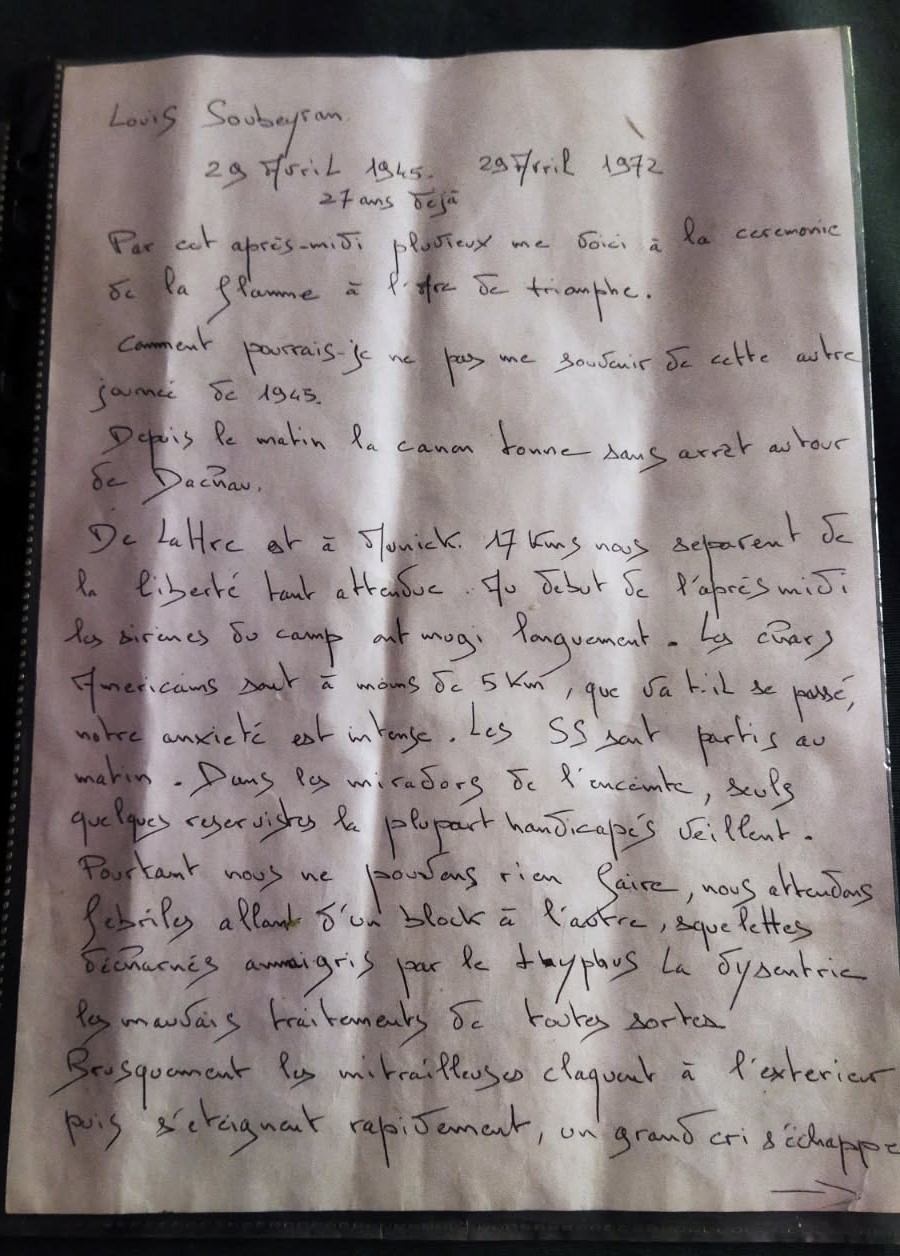 Louis Soubeyran
29 Avril 1945. 29 Avril 1972
27 ans déjà
Par cet après-midi pluvieux me voici à la ceremonie
de la flamme à l'Arc de triomphe.
Comment pourrais-je ne pas me souvenir de cette autre
journée de 1945.
Depuis le matin la canon tonne sans arrêt autour
de Dachau.
De Lattre est à Munick. 17 Kms nous separent de
la liberté tant attendue. Au debut de l'après midi
les sirènes du camp ont mugi longuement. Les chars
Americains sont à moins de 5 Km, que va t.il se passé,
notre anxieté est intense. Les SS sont partis au
matin. Dans les miradors de l'enceinte, seuls
quelques reservistes la plupart handicapés veillent.
Pourtant nous ne pouvons rien faire, nous attendons
febriles allant d'un block à l'autre, squelettes
décharnés amaigris par le thyphus La dysentrie
les mauvais traitements de toutes sortes
Brusquement les mitrailleuses claquent à l'exterieur
puis s'eteignent rapidement, un grand cri s'échappe